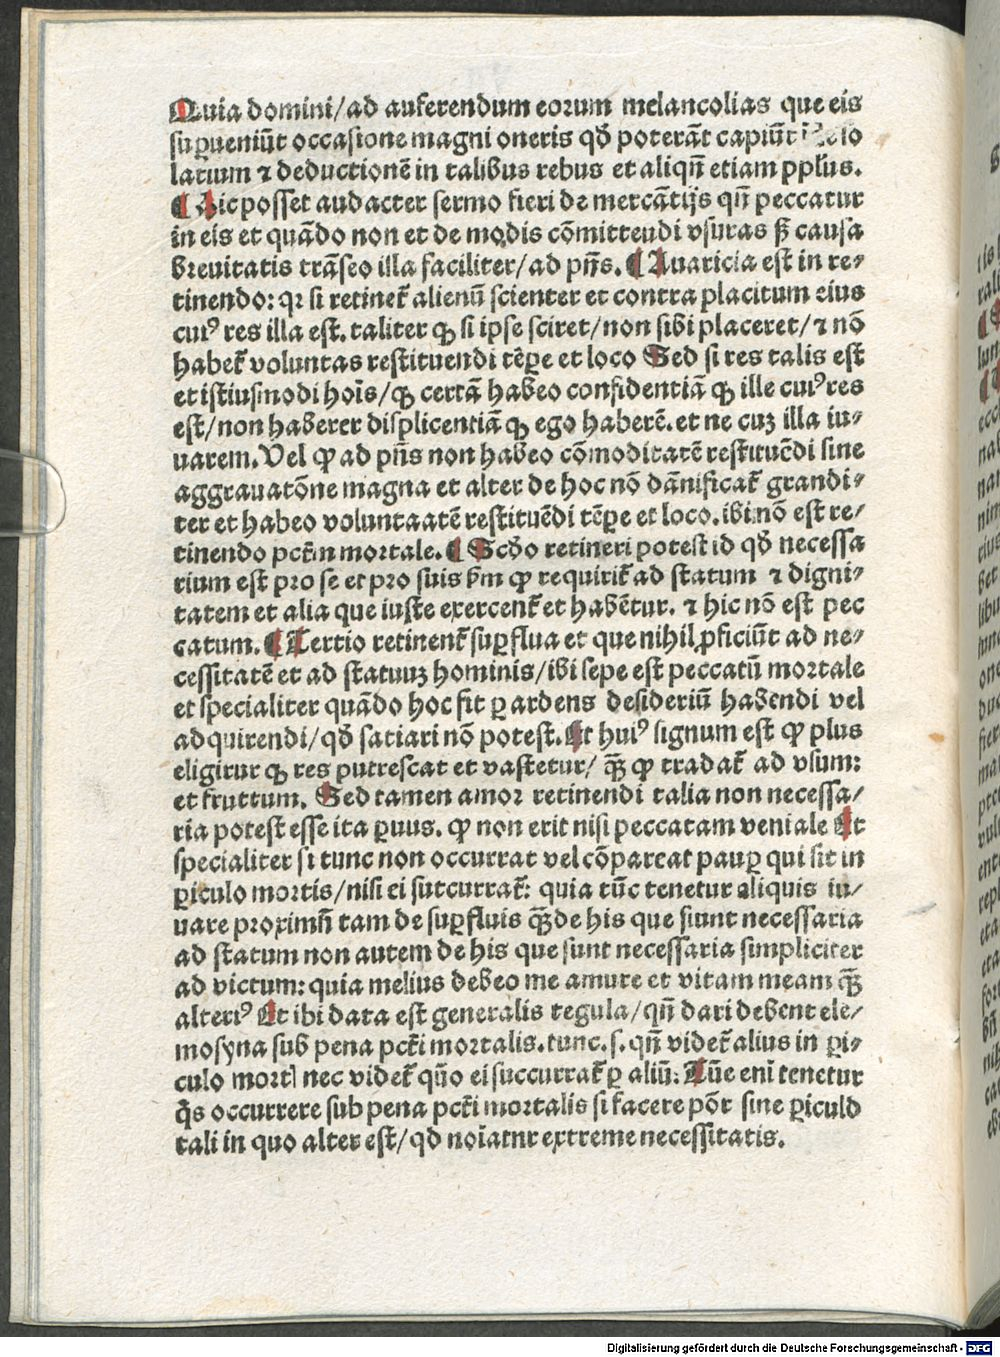 Quia domini/ad auferendum eorum melancolias que eis
suꝑueniũt occasione magni oneris qđ poterãt capiũt so
latium ⁊ deductionẽ in talibus rebus et aliqñ etiam ꝓplus.
¶ Hic posset audacter sermo fieri de mercãtijs qñ peccatur
in eis et quãdo non et de modis cõmittendi vsuras sꝫ causa
breuitatis trãseo illa faciliter/ad pñs. ¶ Auaricia est in re⸗
tinendo: qꝛ si retinet᷑ alienũ scienter et contra placitum eius
cuiꝰ res illa est. taliter ꝙ si ipse sciret/non sibi placeret/⁊ nõ
habet᷑ voluntas restituendi tẽꝑe et loco Sed si res talis est
et istiusmodi hoĩs/ꝙ certã habeo confidentiã ꝙ ille cuiꝰ res
est/non haberer displicentiã ꝙ ego haberẽ. et ne cuꝫ illa iu⸗
uarem. Vel ꝙ ad pñs non habeo cõmoditatẽ restituẽdi sine
aggrauatõne magna et alter de hoc nõ dãnificat᷑ grandi⸗
ter et habeo voluntaatẽ restituẽdi tẽꝑe et loco. ibi nõ est re⸗
tinendo pctm̃ mortale. ¶ Scđo retineri potest id qđ necessa
rium est pro se et pro suis ẜm ꝙ requirit᷑ ad statum ⁊ digni⸗
tatem et alia que iuste exercent᷑ et habẽtur. ⁊ hic nõ est pec
catum. ¶ Tertio retinent᷑ suꝑflua et que nihil ꝓficiũt ad ne⸗
cessitatẽ et ad statuuꝫ hominis/ibi sepe est peccatũ mortale
et specialiter quãdo hoc fit ꝑ ardens desideriũ habendi vel
adquirendi/qđ satiari nõ potest. Et huiꝰ signum est ꝙ plus
eligitur ꝙ res putrescat et vastetur/ꝗ̃ꝫ ꝙ tradat᷑ ad vsum:
et fruttum. Sed tamen amor retinendi talia non necessa/
ria potest esse ita ꝑuus. ꝙ non erit nisi peccatam veniale Et
specialiter si tunc non occurrat vel cõpareat pauꝑ qui sit in
ꝑiculo mortis/nisi ei sutcurrat᷑: quia tũc tenetur aliquis iu/
uare proximũ tam de suꝑfluis ꝗ̃ꝫ de his que siunt necessaria
ad statum non autem de his que sunt necessaria simpliciter
ad victum: quia melius debeo me amure et vitam meam ꝗ̃ꝫ
alteriꝰ Et ibi data est generalis regula/qñ dari debent ele/
mosyna sub pena pcti mortalis. tunc. s. qñ videt᷑ alius in ꝑi⸗
culo mortꝭ nec videt᷑ qũo ei succurrat᷑ ꝑ aliũ: Tũe eni tenetur
ꝗ̃s occurrere sub pena pcti mortalis si facere põt sine ꝑiculo
tali in quo alter est/qđ noĩatnr extreme necessitatis.
Digitalisierung gefördert durch die Deutsche Forschungsgemeinschaft - DFG